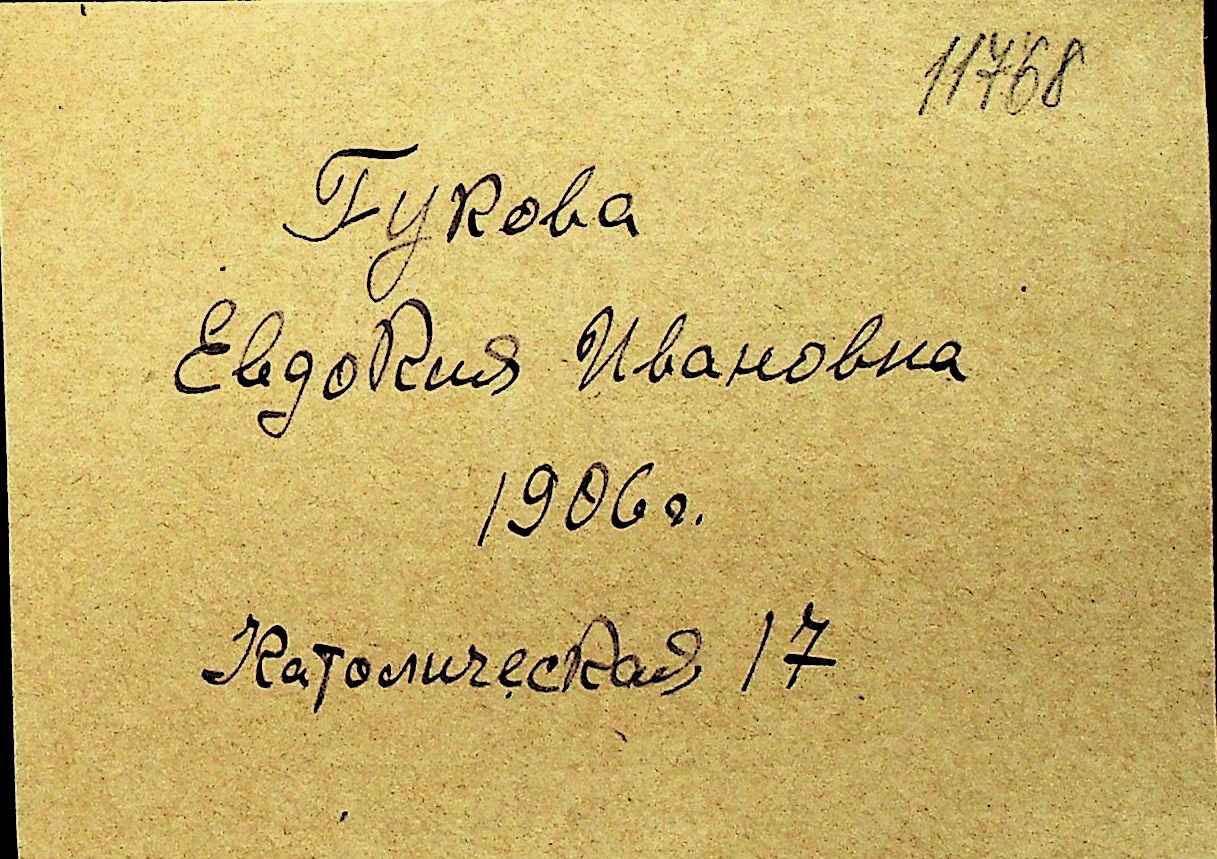 11768
Гукова
Евдокия Ивановна
1906 г.
Католическая 17